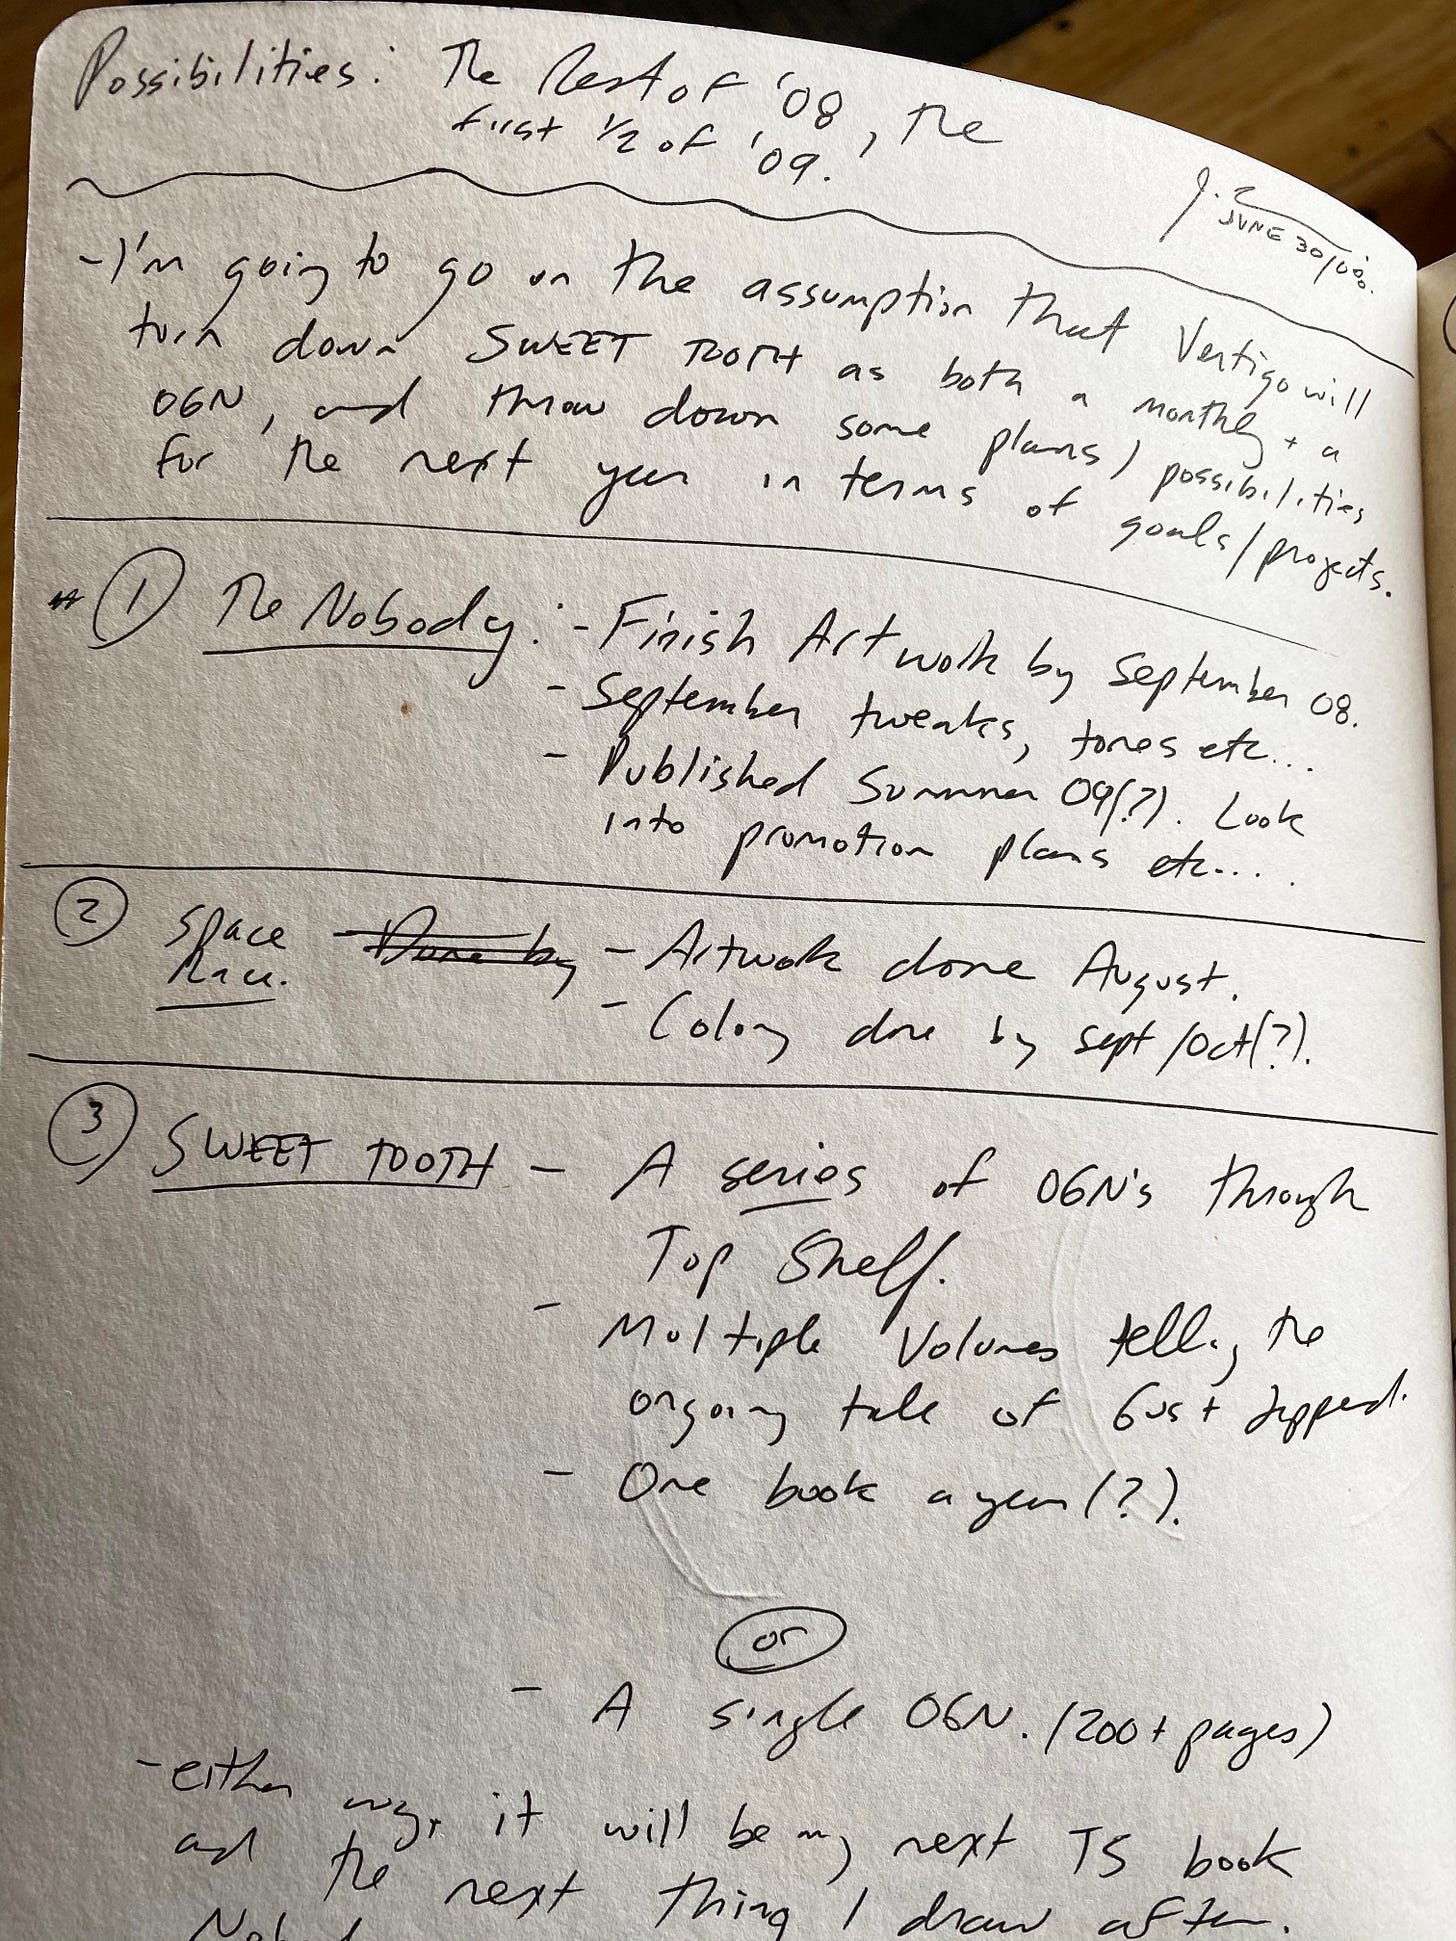 Possibilities: The Rest of '08, the
first 1/2 of '09.
JUNE 30/08.
- I'm going to go on the assumption that Vertigo will
turn down SWEET TOOTH as both a monthly + a
OGN, and throw down some plans/possibilities
for the next year in terms of goals/projects.
* 1 The Nobody: - Finish Artwork by September 08.
- September tweaks, tones etc...
- Published Summer 09(?). Look
into promotion plans etc....
2 Space Done by - Artwork done August.
Race. - Coloring done by sept/oct(?).
3 SWEET TOOTH - A series of OGN's through
Top Shelf.
- Multiple Volumes telling the
ongoing tale of Gus + Jepperd.
- One book a year(?).
or
- A single OGN. (200+ pages)
- either way, it will be my next TS book
and the next thing I draw after